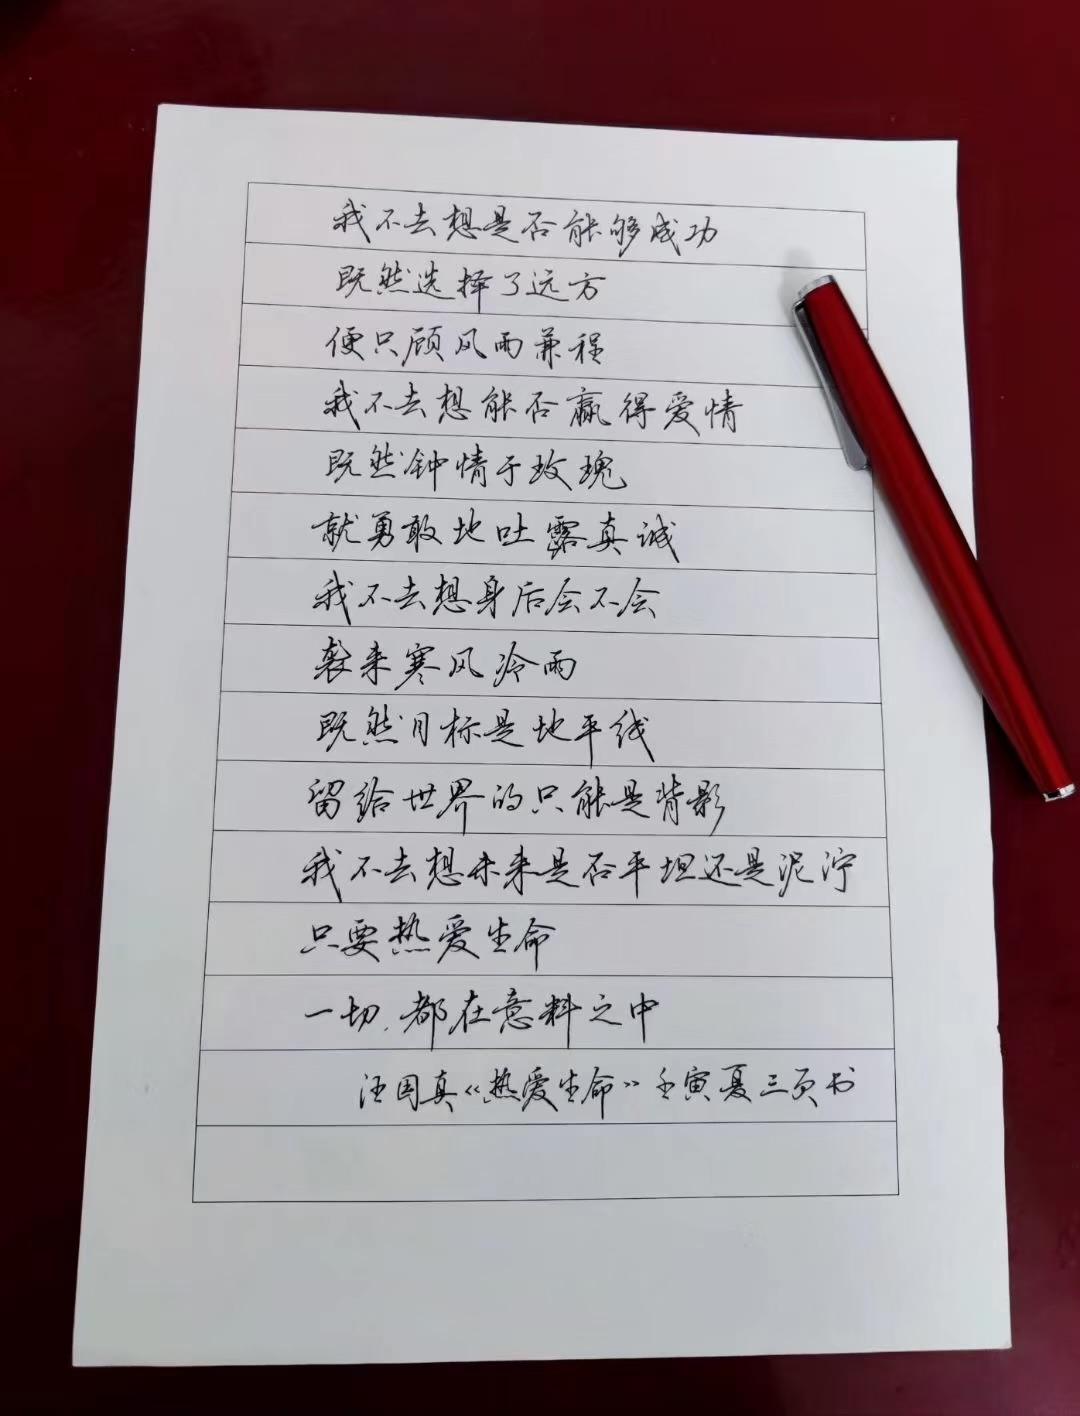 我不去想是否能够成功
既然选择了远方
便只顾风雨兼程
我不去想能否赢得爱情
既然钟情于玫瑰
就勇敢地吐露真诚
我不去想身后会不会
袭来寒风冷雨
既然目标是地平线
留给世界的只能是背影
我不去想未来是否平坦还是泥泞
只要热爱生命
一切,都在意料之中
汪国真《热爱生命》壬寅夏三页书